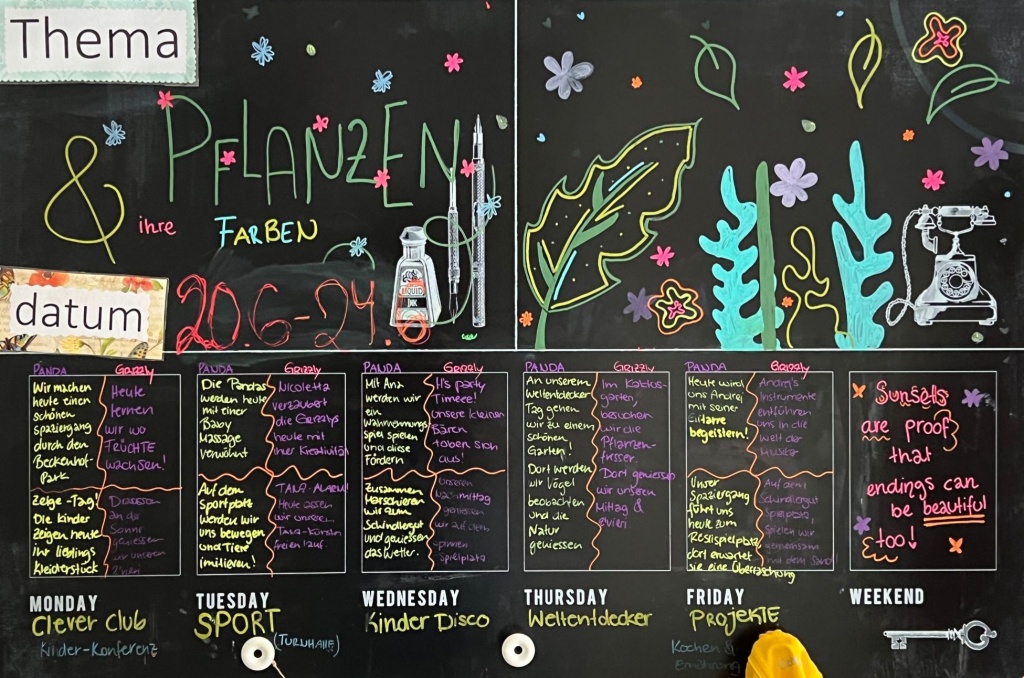 Thema
PFLANZEN
&
ihre
FARBEN
LIQUID
INK
datum
20.6-24.6
PANDA
Grizzly
Wir machen
heute einen
schönen
spaziergang
durch den
Beckenhof-
Park
Heute
lernen
wir wo
FRÜCHTE
wachsen!
Zeige-Tag!
Die Kinder
zeigen heute
ihr lieblings
Kleiderstück
Draussen
an der
Sonne
geniessen
wir unseren
PANDA
Grizzly
Die Pandas
werden heute
mit einer
Baby
Massage
verwöhnt
Nicoletta
verzaubert
die Grizzlys
heute mit
ihrer Kreativität
Auf dem
Sportplatz
werden wir
uns bewegen
und Tiere
imitieren!
TANZ-ALARM!
Heute lassen
wir unseren
Tanz-Künsten
freien lauf.
PANDA
Grizzly
Mit Ana
werden wir
ein
wahrnehmungs
spiel spielen
und diese
Fördern
It's party
Timeee!
Unsere kleinen
Bären
toben sich
aus!
Zusammen
Marschieren
wir zum
Schindlergut
und geniessen
das Wetter.
Unseren
Nachmittag
geniessen
wir auf dem
Spielplatz
PANDA
Grizzly
An unserem
Weltentdecker
Tag gehen
wir zu einem
schönen
Garten!
Dort werden
wir Vögel
beobachten
und die
Natur
geniessen
Im Kaktus-
garten,
besuchen
wir die
Pflanzen-
fresser.
Dort geniessen
wir unseren
Mittag &
PANDA
Grizzly
Heute wird
uns Andrej
mit seiner
Gitarre
begeistern!
Andrej's
Instrumente
entführen
uns in die
Welt der
Musik
Unser
Spaziergang
führt uns
heute zum
Röslispielplatz
dort erwartet
sie eine Überraschung
Auf dem
Schindlergut
Spielplatz
spielen wir
gemeinsam
mit dem Sand
Sunsets
are proof
that
endings can
be beautiful
too!
MONDAY
Clever Club
Kinder-Konferenz
TUESDAY
SPORT
(TURNHALLE)
WEDNESDAY
Kinder Disco
THURSDAY
Weltentdecker
FRIDAY
PROJEKTE
Kochen &
Ernährung
WEEKEND